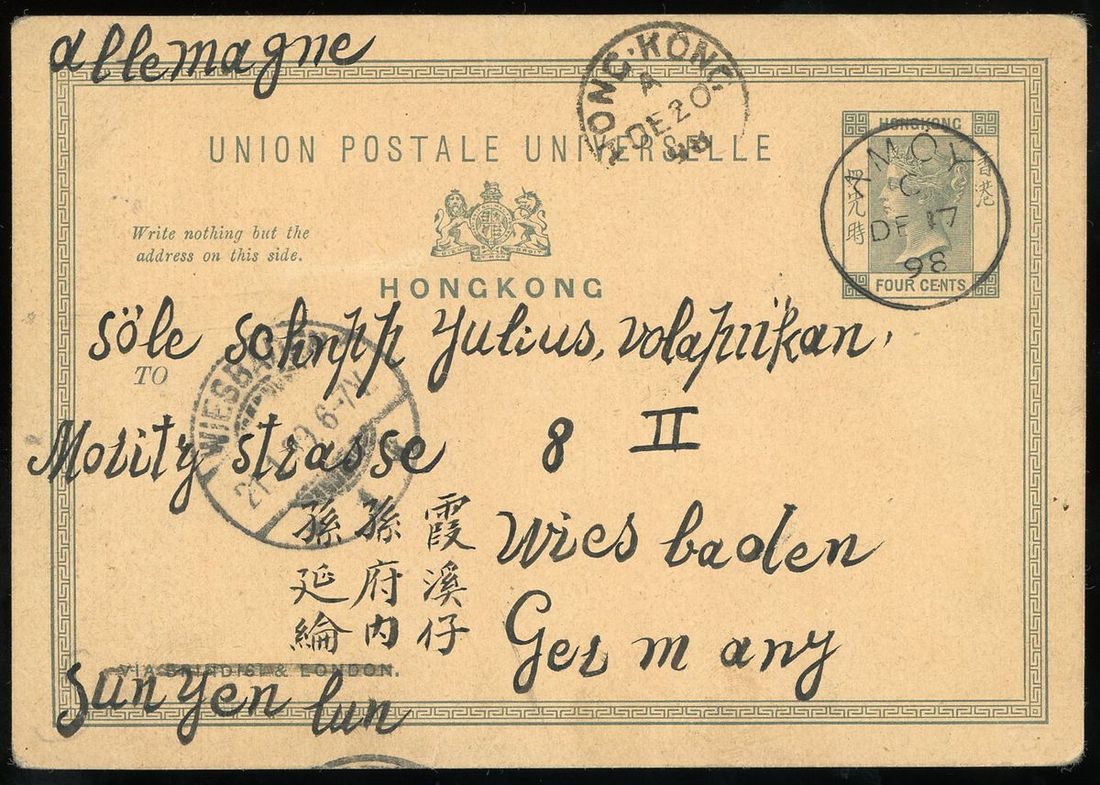 allemagne
HONG·KONG
A
DE 20
98
UNION POSTALE UNIVERSELLE
HONGKONG
香港
FOUR CENTS
AMOY
C
DE 17
98
Write nothing but the
address on this side.
HONGKONG
söle schnepp Julius, volapükan,
TO
WIESBADEN
6-7N.
1
Moritz strasse 8 II
霞溪仔
孫府内
孫延綸
Wiesbaden
Germany
VIA BRINDISI & LONDON.
Sun Yen lun